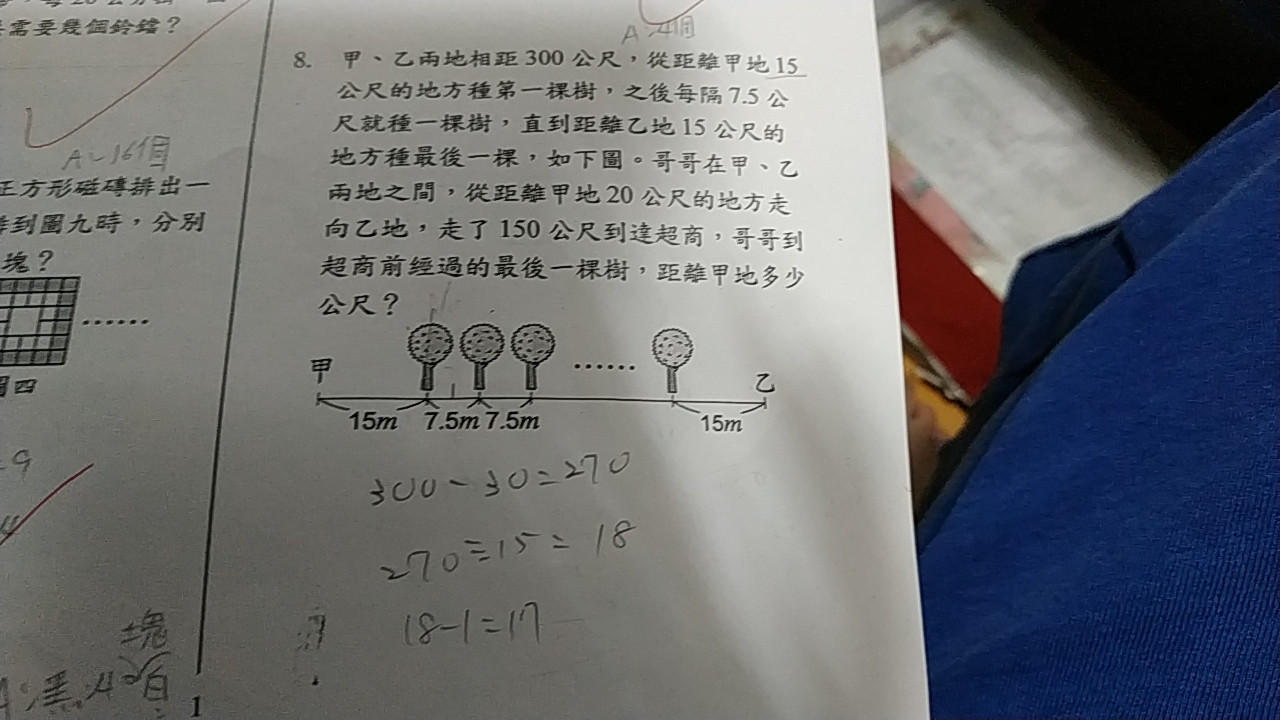 需要幾個鈴鐺？
A：16個
正方形磁磚排出一
排到圖九時，分別
塊？
……
圖四
9
塊
1
A：4個
8. 甲、乙兩地相距 300 公尺，從距離甲地 15
公尺的地方種第一棵樹，之後每隔 7.5 公
尺就種一棵樹，直到距離乙地 15 公尺的
地方種最後一棵，如下圖。哥哥在甲、乙
兩地之間，從距離甲地 20 公尺的地方走
向乙地，走了 150 公尺到達超商，哥哥到
超商前經過的最後一棵樹，距離甲地多少
公尺？
甲 …… 乙
15m 7.5m 7.5m 15m
300-30=270
270÷15=18
18-1=17